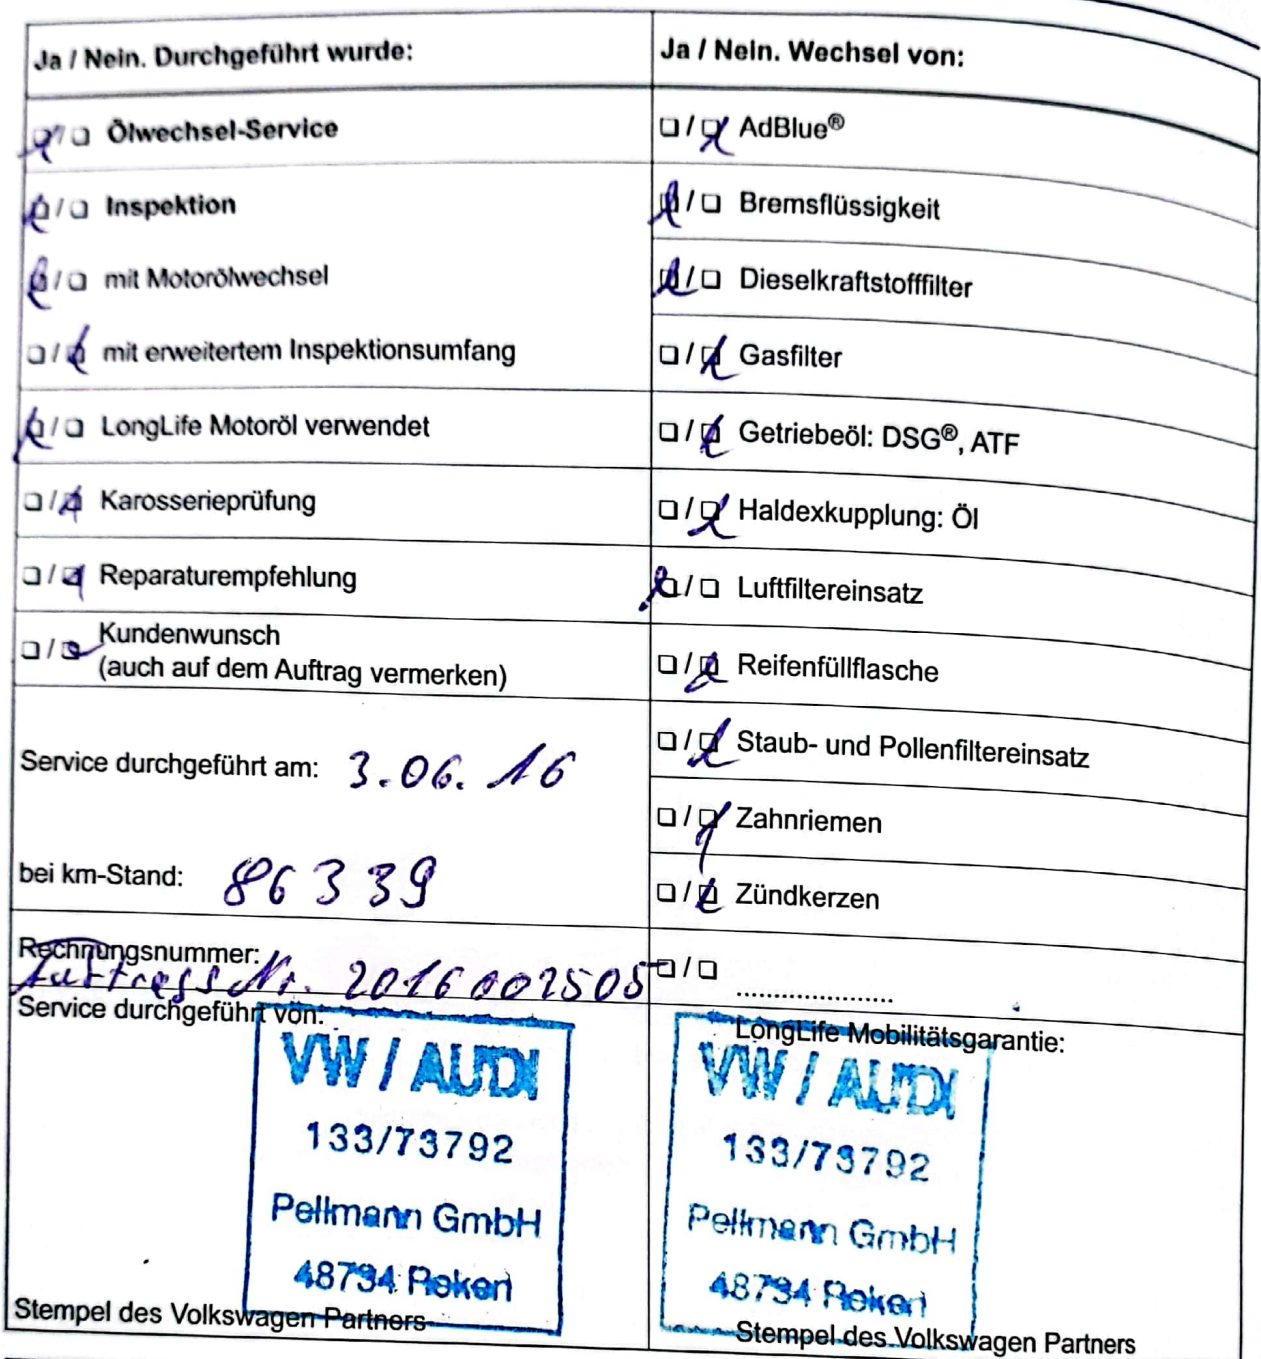 Ja / Nein. Durchgeführt wurde:
☒/☐ Ölwechsel-Service
☒/☐ Inspektion
☒/☐ mit Motorölwechsel
☐/☒ mit erweitertem Inspektionsumfang
☒/☐ LongLife Motoröl verwendet
☐/☒ Karosserieprüfung
☐/☒ Reparaturempfehlung
☐/☒ Kundenwunsch
(auch auf dem Auftrag vermerken)
Service durchgeführt am: 3.06.16
bei km-Stand: 86339
Rechnungsnummer:
Nr. 2016002505
Service durchgeführt von:
VW / AUDI
133/73792
Pellmann GmbH
48734 Reken
Stempel des Volkswagen Partners
Ja / Nein. Wechsel von:
☐/☒ AdBlue®
☒/☐ Bremsflüssigkeit
☒/☐ Dieselkraftstofffilter
☐/☒ Gasfilter
☐/☒ Getriebeöl: DSG®, ATF
☐/☒ Haldexkupplung: Öl
☒/☐ Luftfiltereinsatz
☐/☒ Reifenfüllflasche
☐/☒ Staub- und Pollenfiltereinsatz
☐/☒ Zahnriemen
☐/☒ Zündkerzen
☐/☐ .....................
LongLife Mobilitätsgarantie:
VW / AUDI
133/73792
Pellmann GmbH
48734 Reken
Stempel des Volkswagen Partners